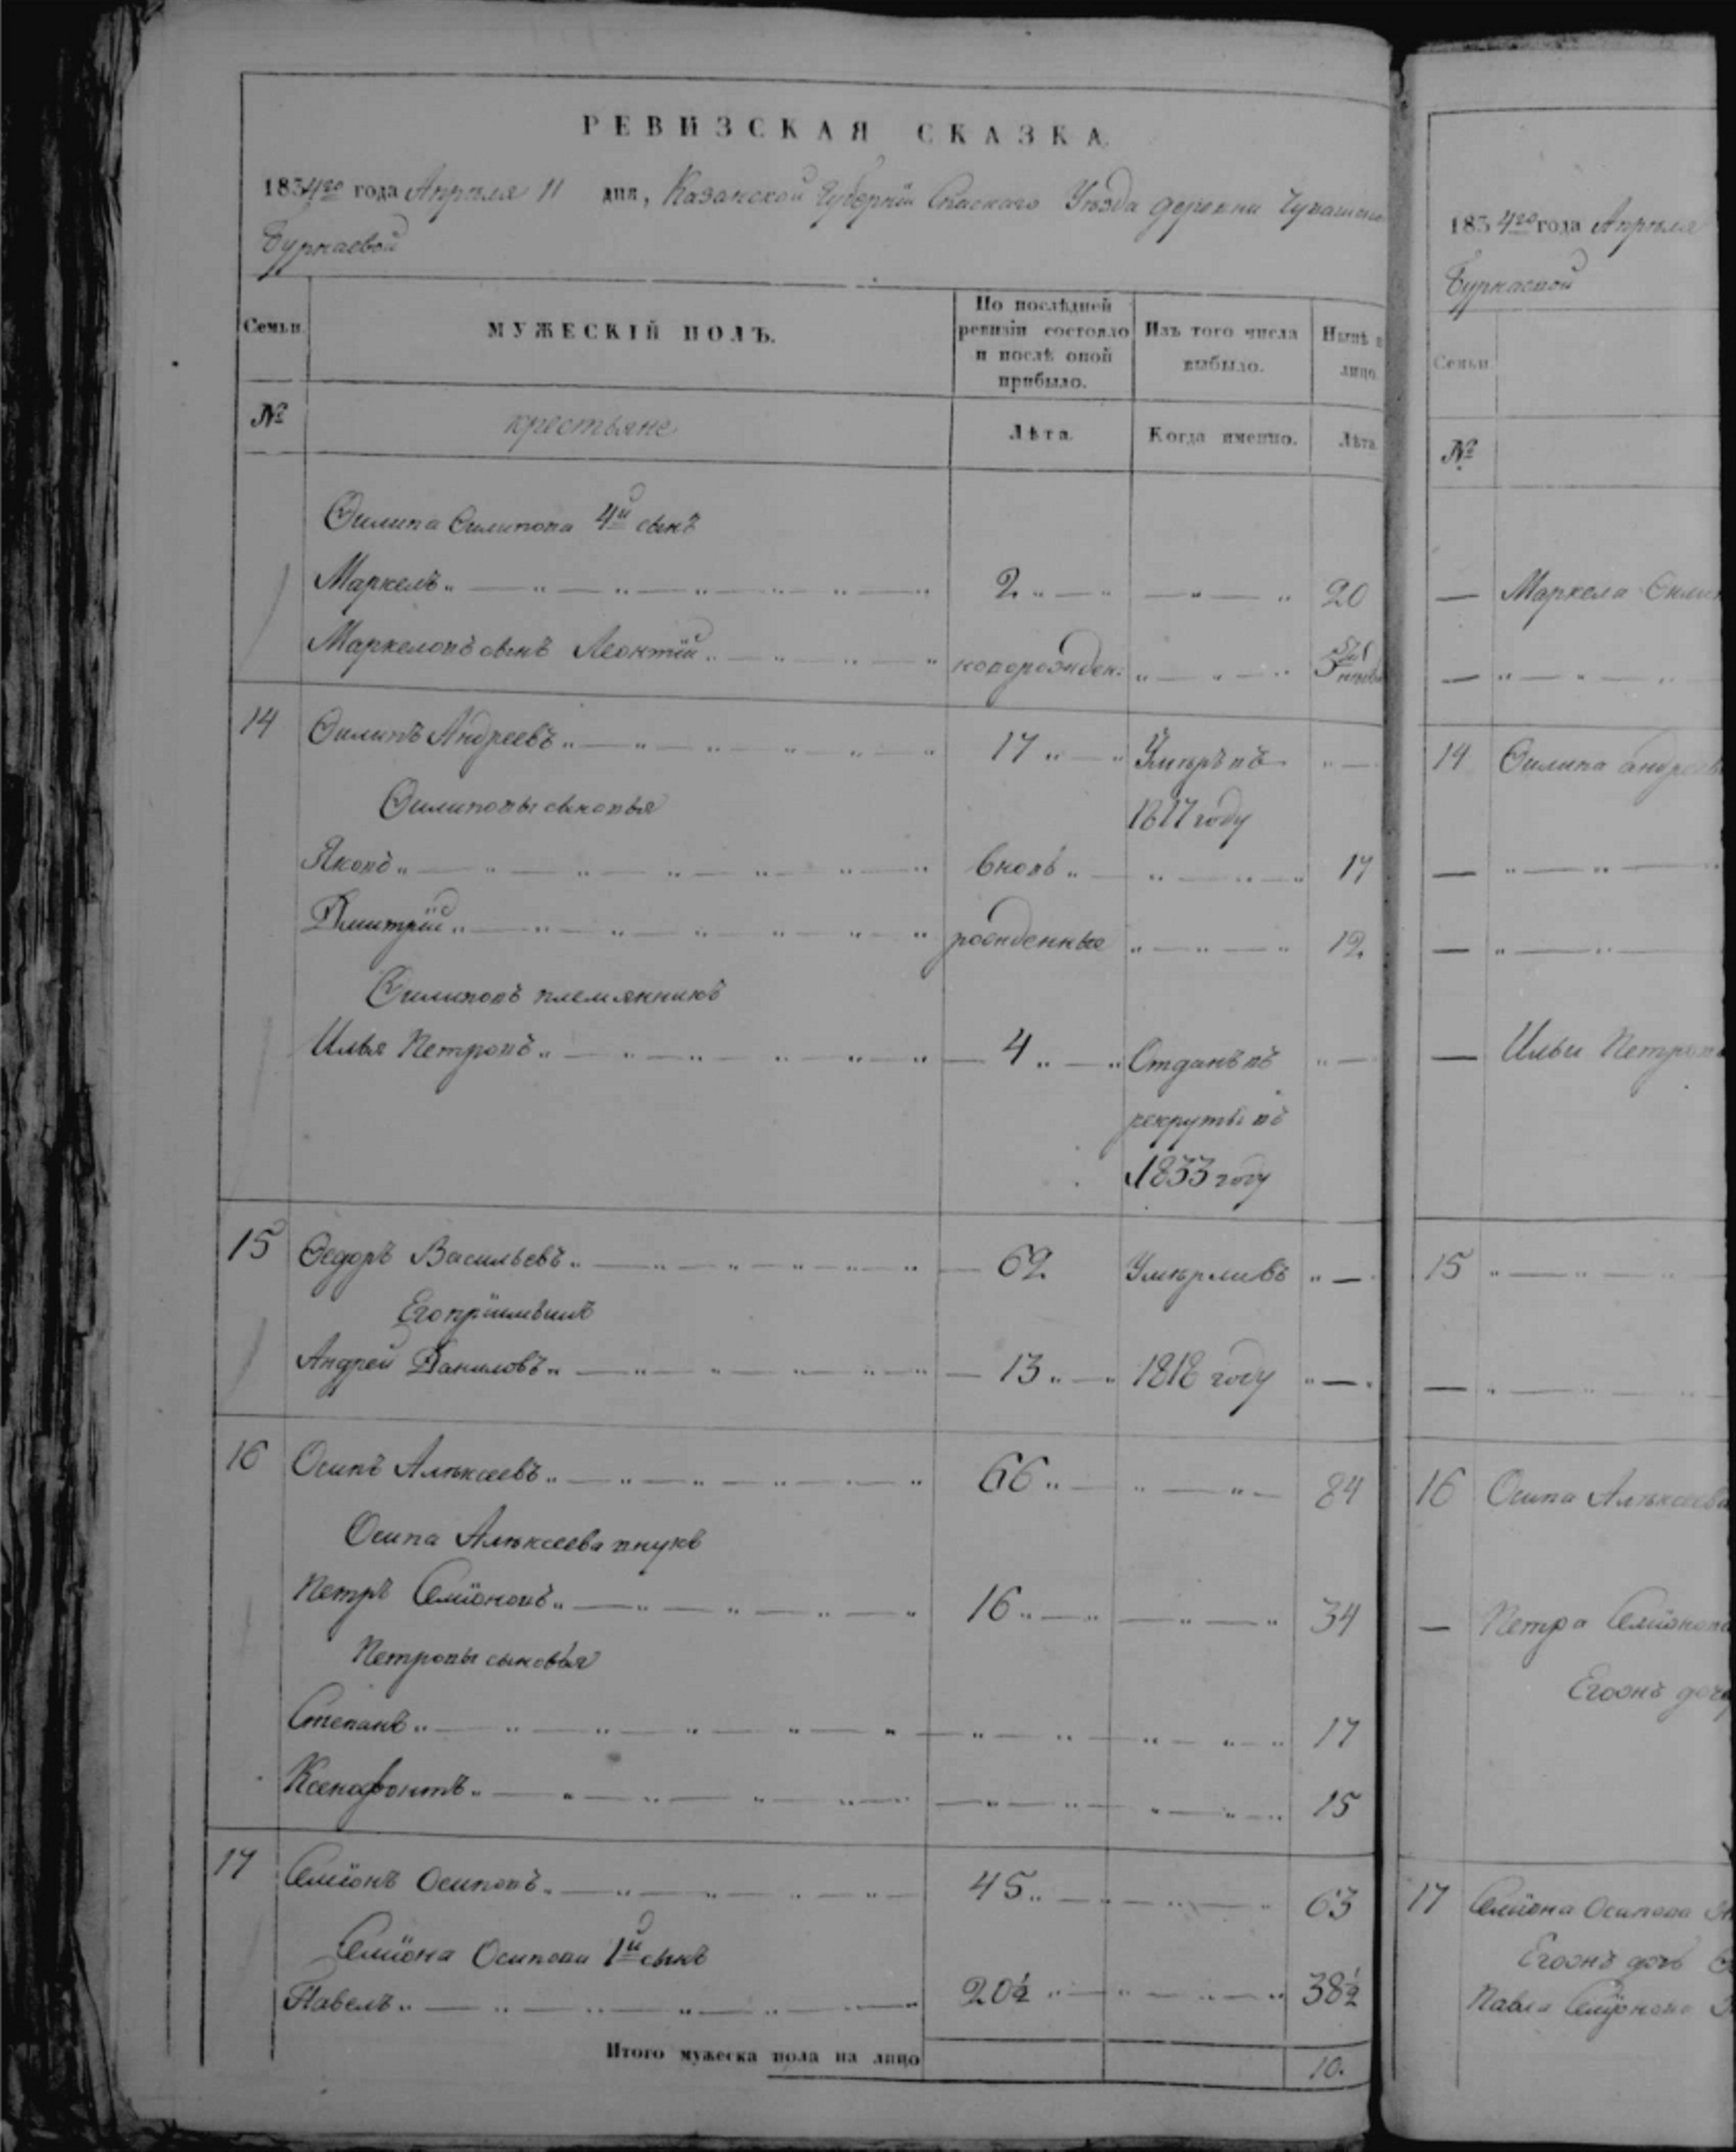 РЕВИЗСКАЯ СКАЗКА.
1834го года Апреля 11 дня, Казанской Губерніи Спаскаго Уѣзда деревни
Бурнаевой
Семьи. МУЖЕСКІЙ ПОЛЪ. По послѣдней ревизіи состояло и послѣ оной прибыло. Изъ того числа выбыло. Нынѣ лицо.
№ крестьяне Лѣта. Когда именно. Лѣта.
Ѳилипа Ѳилипова 4й сынъ
Маркелъ 2 20
Маркеловъ сынъ Леонтій новорожден:
14 Ѳилипъ Андреевъ 17 Умѣръ въ
Ѳилиповы сыновья 1817 году
Яковъ вновь 17
Дмитрій рожденные 12
Ѳилиповъ племянникъ
Илья Петровъ 4 Отданъ въ
рекруты въ
1833 году
15 Ѳедоръ Васильевъ 62 Умѣрли въ
Его пріимышъ
Андрей Даниловъ 13 1818 году
16 Осипъ Алѣксеевъ 66 84
Осипа Алѣксеева внукъ
Петръ Семіоновъ 16 34
Петровы сыновья
Степанъ 17
Ксенофонтъ 15
17 Семіонъ Осиповъ 45 63
Семіона Осипова 1й сынъ
Павелъ 20½ 38½
Итого мужеска пола на лицо 10.
1834го года Апреля
Бурнаевой
Семьи.
№
Маркела
14 Ѳилипа
Ильи
15
16 Осипа Алѣксеева
Петра
Егоонъ
17 Семіона Осипова
Егоонъ дочь
Павла